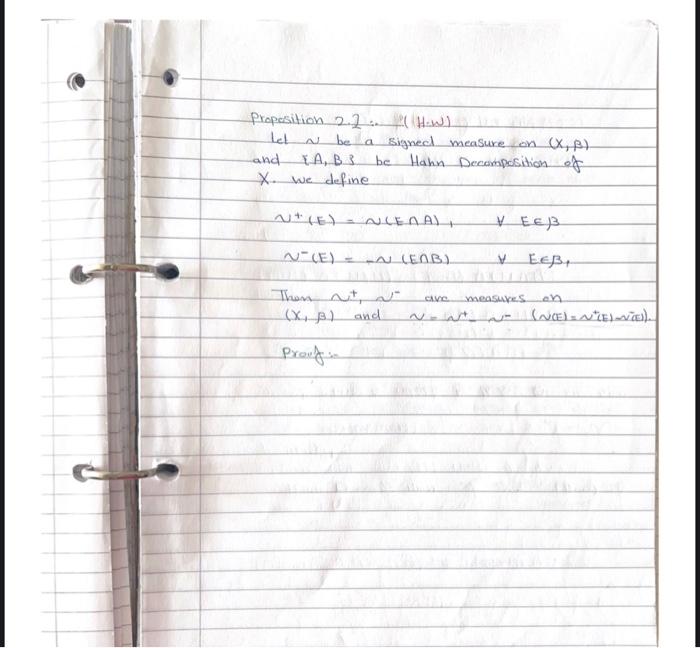 Proposition 2.2 :- (H.W)
Let ν be a signed measure on (X, β)
and {A, B} be Hahn Decomposition of
X. we define
ν⁺(E) = ν(E∩A), ∀ E∈β
ν⁻(E) = -ν(E∩B) ∀ E∈β,
Then ν⁺, ν⁻ are measures on
(X, β) and ν = ν⁺- ν⁻ (ν(E) = ν⁺(E)-ν⁻(E)).
Proof:-